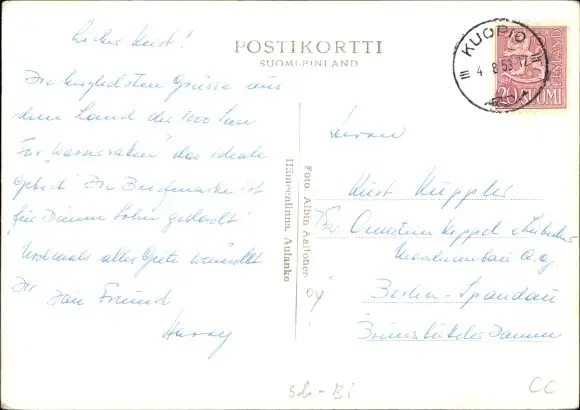 Lieber Kurt!
POSTIKORTTI
SUOMI-FINLAND
KUOPIO
4 8 58 12
20 SUOMI
Die herzlichsten Grüsse aus
dem Land der 1000 Seen
Für "Wasserraken" das ideale
Gebiet. Die Briefmarke ist
für Deinen Sohn gedacht
Nochmals alles Gute wünscht
Dir Dein Freund
Harry
Foto. Albin Aaltonen
Hämeenlinna, Aulanko
Herrn
Kurt Küppler
Orenstein Koppel & Lübecker
Maschinenbau A.G.
Berlin-Spandau
Brunsbüttler Damm
Sch-Bi
CC